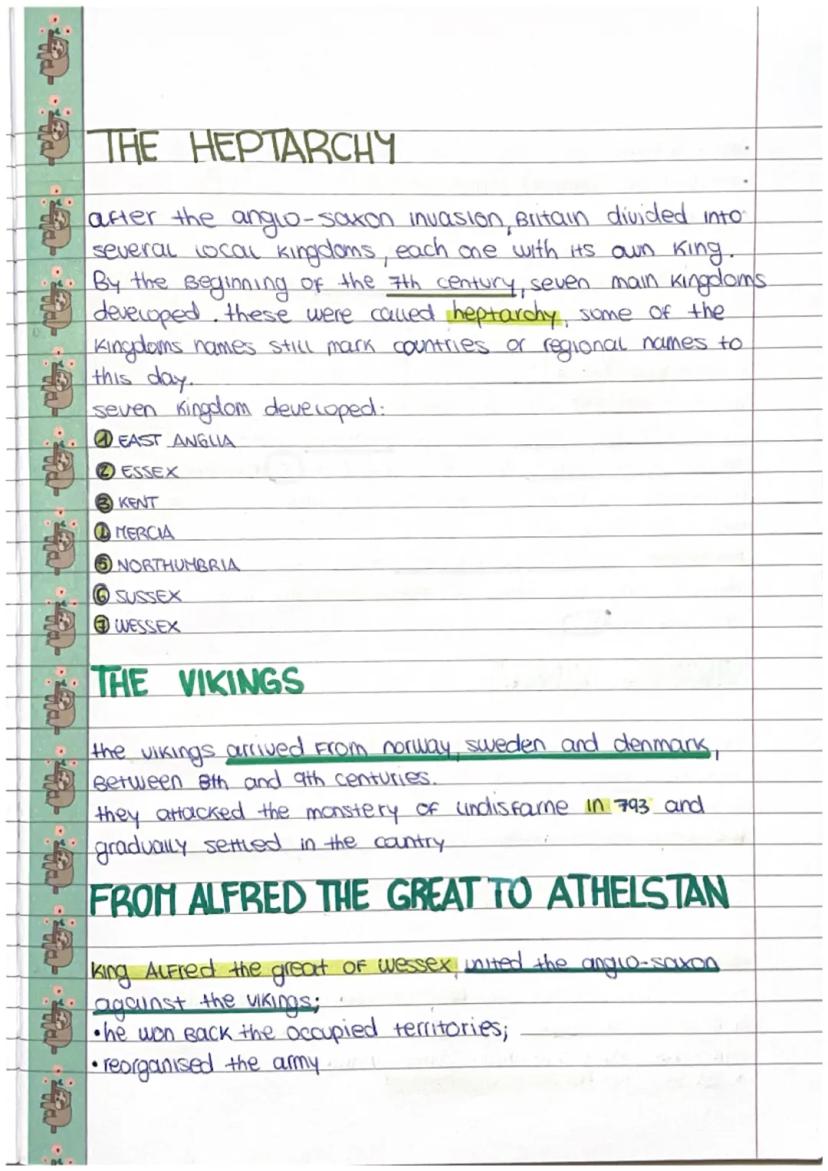 THE HEPTARCHY
after the anglo-saxon invasion, Britain divided into
several local kingdoms, each one with its own king.
By the Beginning of the 7th century, seven main kingdoms
developed. these were called heptarchy, some of the
kingdoms names still mark countries or regional names to
this day.
seven kingdom developed:
1 EAST ANGLIA
2 ESSEX
3 KENT
4 MERCIA
5 NORTHUMBRIA
6 SUSSEX
7 WESSEX
THE VIKINGS
the vikings arrived from norway, sweden and denmark,
Between 8th and 9th centuries.
they attacked the monstery of lindisfarne in 793 and
gradually settled in the country
FROM ALFRED THE GREAT TO ATHELSTAN
king Alfred the great of wessex united the anglo-saxon
against the vikings;
•he won Back the occupied territories;
•reorganised the army